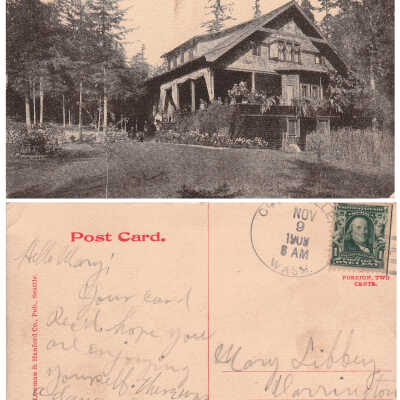 Post Card.
NOV
9
1909
8 AM
WASH.
FOREIGN, TWO
CENTS.
& Hanford Co., Pub., Seattle.
Hello Mary;
Your card
Rec'd hope you
are enjoying
yourself.
Mary Libbey